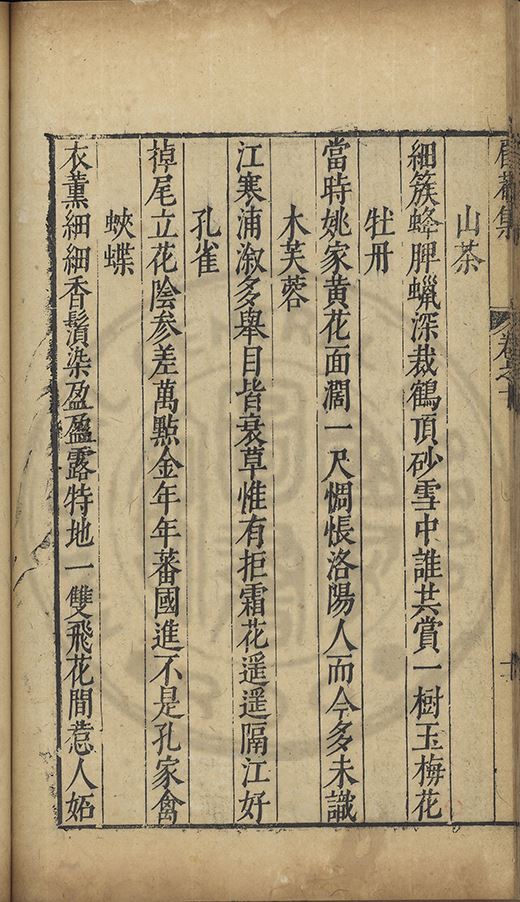 山茶
細簇蜂脾蠟深裁鶴頂砂雪中誰共賞一樹玉梅花
牡丹
當時姚家黃花面濶一尺惆悵洛陽人而今多未識
木芙蓉
江寒浦溆多舉目皆衰草惟有拒霜花遥遥隔江好
孔雀
掉尾立花陰参差萬點金年年蕃國進不是孔家禽
蛺蝶
衣薰細細香鬚染盈盈露特地一雙飛花間惹人妬